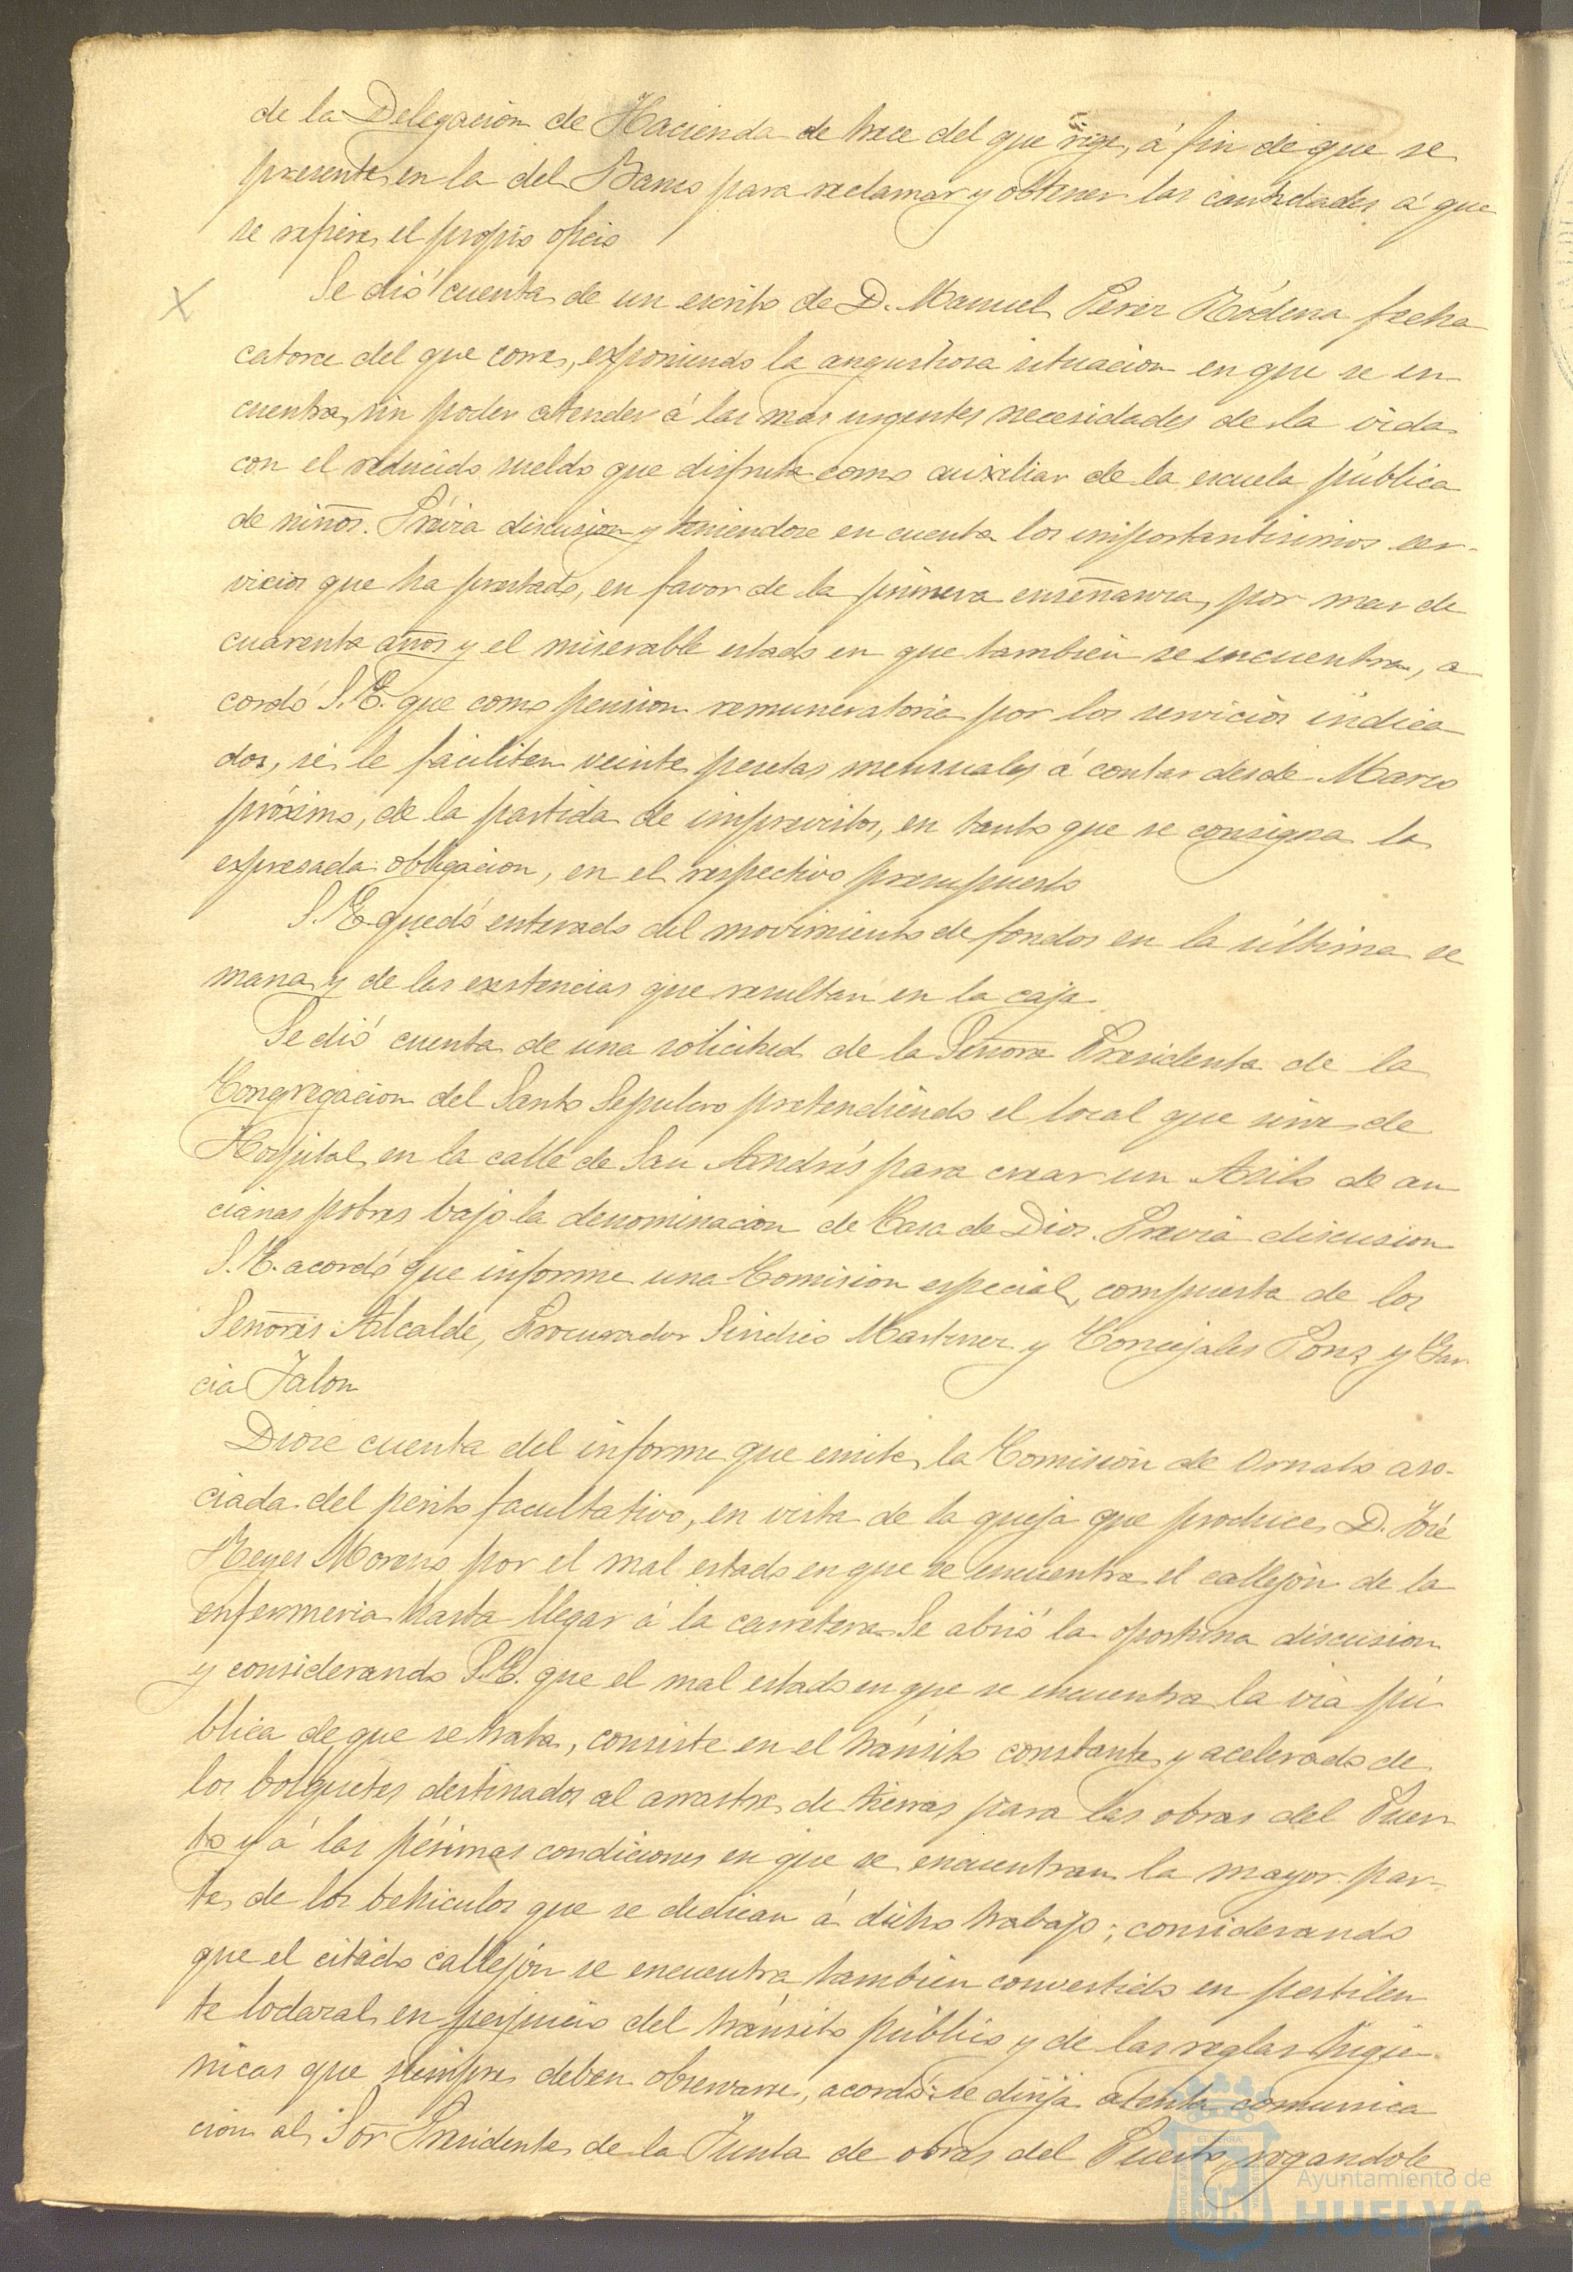 de la Delegacion de Hacienda de trece del que rige, á fin de que se
presente en la del Banco para reclamar y obtener las cantidades á que
se refiere el propio oficio
Se dió cuenta de un escrito de D. Manuel Perez Ródena fecha
catorce del que corre, exponiendo la angustiosa situacion en que se en
cuentra, sin poder atender á las mas urgentes necesidades de la vida
con el reducido sueldo que disfruta como auxiliar de la escuela pública
de niños. Prévia discusion y teniendose en cuenta los importantisimos ser-
vicios que ha prestado, en favor de la primera enseñanza, por mas de
cuarenta años y el miserable estado en que tambien se encuentra, a
cordó S.E. que como pension remuneratoria por los servicios indica
dos, se le faciliten veinte pesetas mensuales á contar desde Marzo
próximo, de la partida de imprevistos, en tanto que se consigna la
expresada obligacion, en el respectivo presupuesto
S.E. quedó enterado del movimiento de fondos en la última se
mana y de las existencias que resultan en la caja.
Se dió cuenta de una solicitud de la Señora Presidenta de la
Congregacion del Santo Sepulcro pretendiendo el local que sirve de
Hospital en la calle de San Andrés para crear un Asilo de an
cianas pobres bajo la denominacion de Casa de Dios. Previa discusion
S.E. acordó que informe una Comision especial, compuesta de los
Señores Alcalde, Procurador Sindico Martinez y Concejales Pons y Gar
cia Jalon
Diose cuenta del informe que emite la Comisión de Ornato aso-
ciada del perito facultativo, en vista de la queja que produce D. José
Reyes Moreno por el mal estado en que se encuentra el callejón de la
enfermeria hasta llegar á la carretera. Se abrió la oportuna discusion
y considerando S.E. que el mal estado en que se encuentra la via pú
blica de que se trata, consiste en el tránsito constante y acelerado de
los bolquetes destinados al arrastre de tierras para las obras del Puer
to y á las pésimas condiciones en que se encuentran la mayor par-
te de los vehiculos que se dedican á dicho trabajo; considerando
que el citado callejón se encuentra tambien convertido en pestilen
te lodazal en perjuicio del tránsito público y de las reglas higie-
nicas que siempre deben observarse, acordó: se dirija atenta comunica
cion al Sor Presidente de la Junta de obras del Puerto, rogandole
Ayuntamiento de
HUELVA